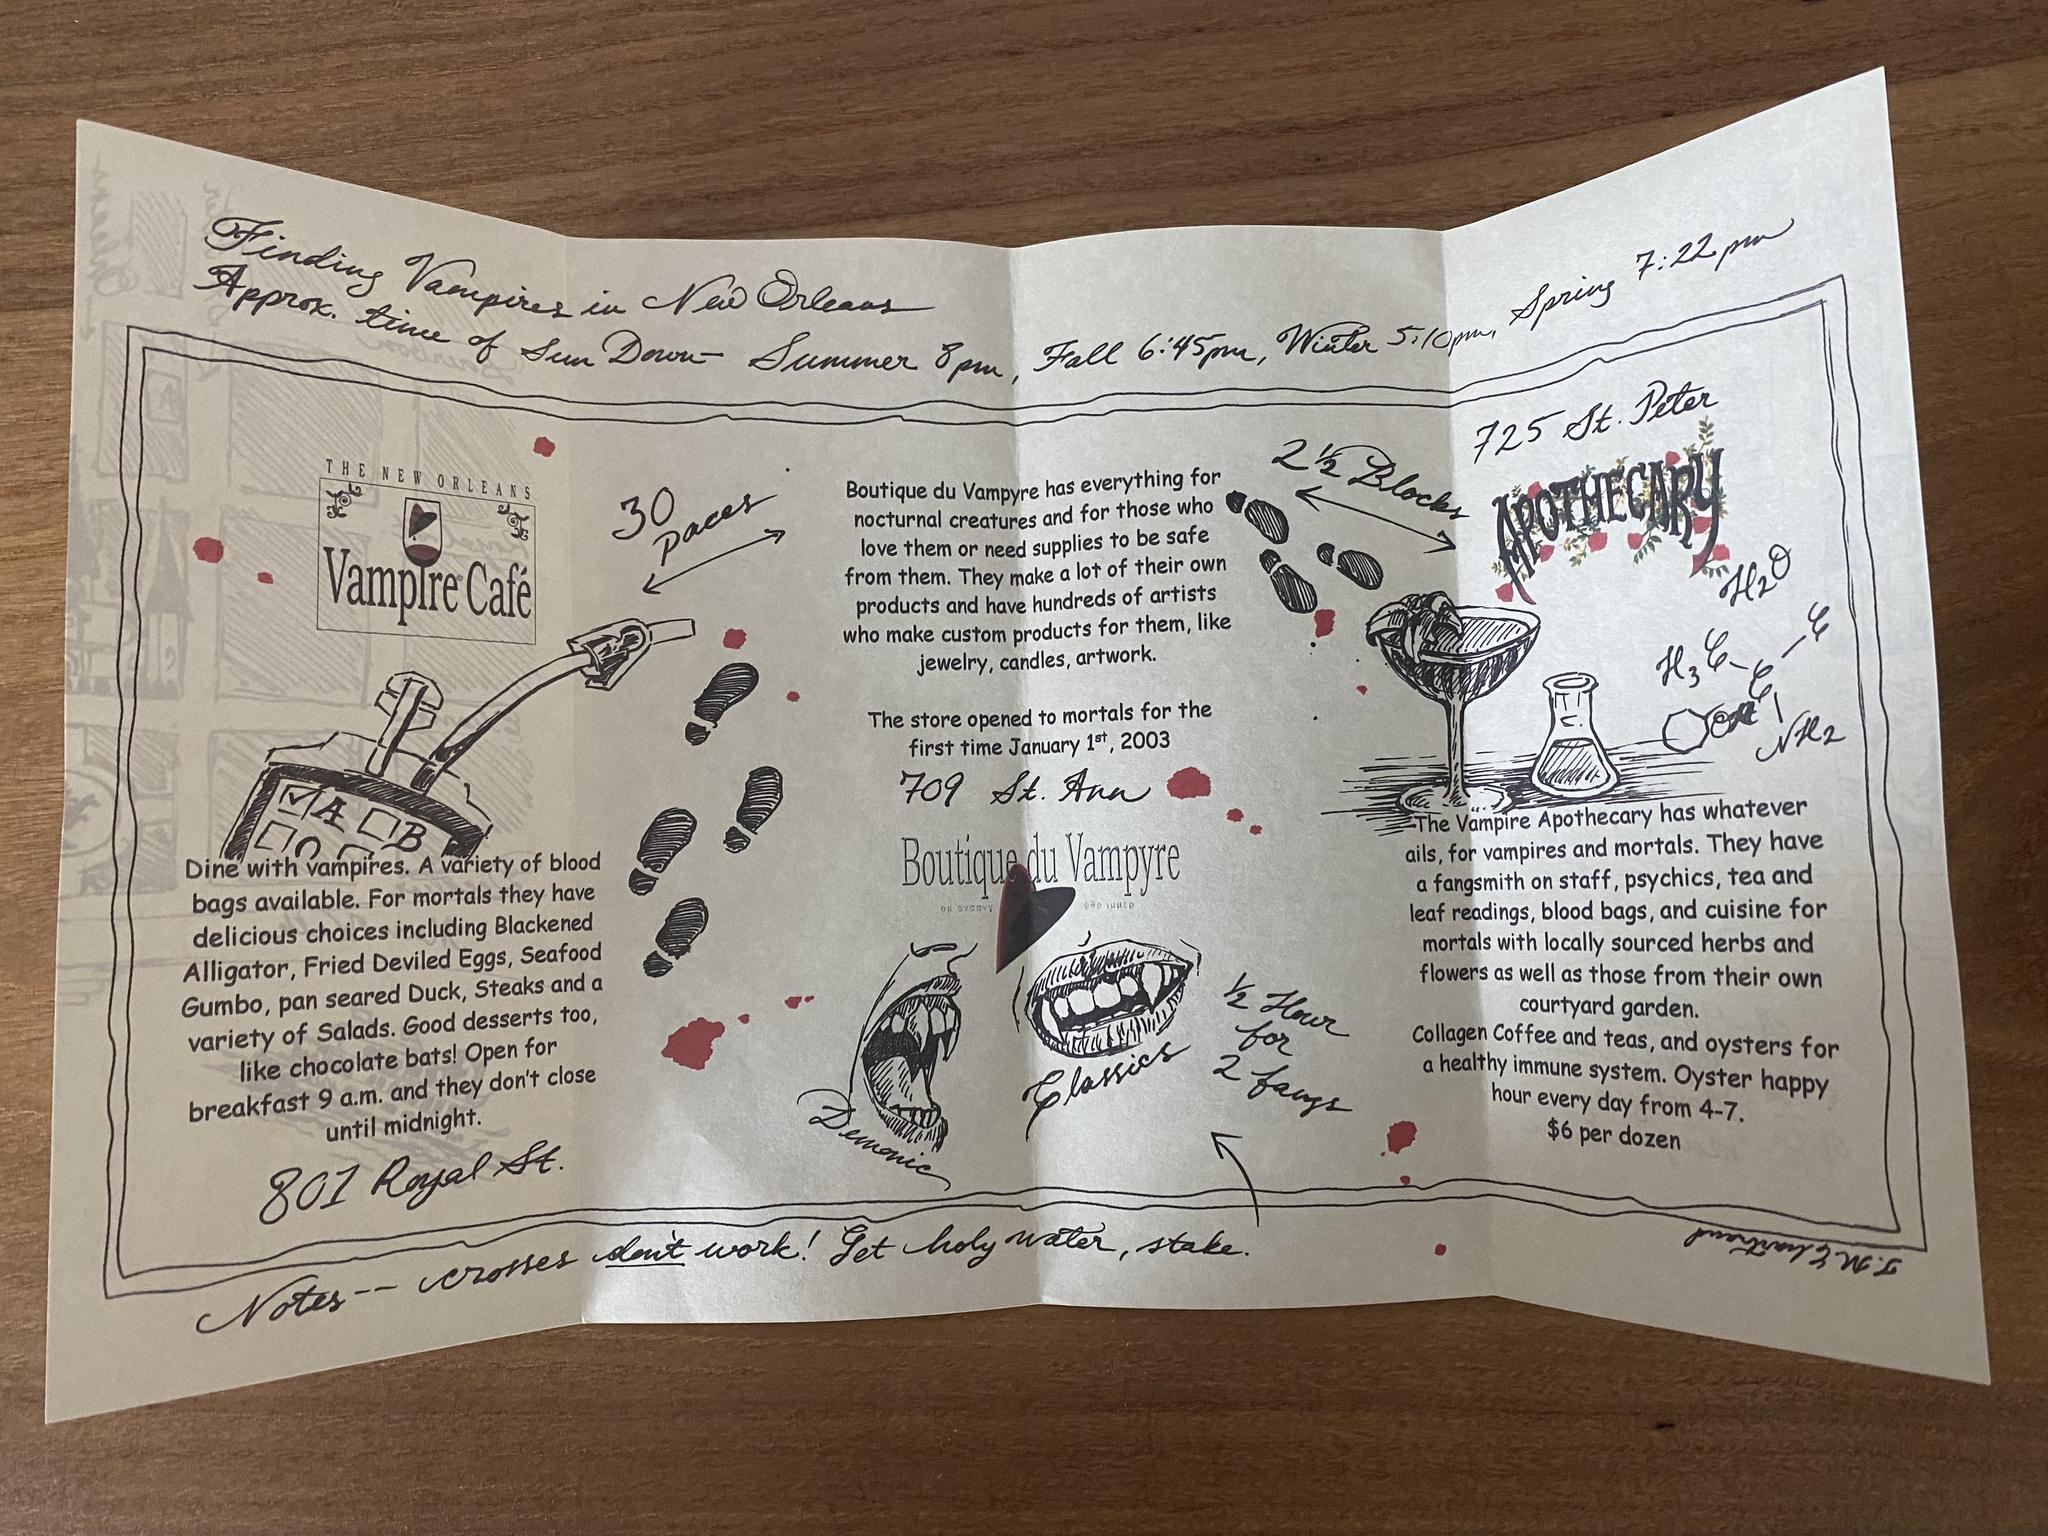 Finding Vampires in New Orleans
Approx. time of Sun Down- Summer 8pm, Fall 6:45pm, Winter 5:10pm, Spring 7:22pm
THE NEW ORLEANS
Vampire Café
A B
Dine with vampires. A variety of blood
bags available. For mortals they have
delicious choices including Blackened
Alligator, Fried Deviled Eggs, Seafood
Gumbo, pan seared Duck, Steaks and a
variety of Salads. Good desserts too,
like chocolate bats! Open for
breakfast 9 a.m. and they don't close
until midnight.
801 Royal St.
30
paces
Boutique du Vampyre has everything for
nocturnal creatures and for those who
love them or need supplies to be safe
from them. They make a lot of their own
products and have hundreds of artists
who make custom products for them, like
jewelry, candles, artwork.
The store opened to mortals for the
first time January 1st, 2003
709 St. Ann
Boutique du Vampyre
Demonic
Classics
½ Hour
for
2 fangs
2 ½ Blocks
725 St. Peter
APOTHECARY
H2O
H3C C
C
NH2
The Vampire Apothecary has whatever
ails, for vampires and mortals. They have
a fangsmith on staff, psychics, tea and
leaf readings, blood bags, and cuisine for
mortals with locally sourced herbs and
flowers as well as those from their own
courtyard garden.
Collagen Coffee and teas, and oysters for
a healthy immune system. Oyster happy
hour every day from 4-7.
$6 per dozen
Notes-- crosses don't work! Get holy water, stake.